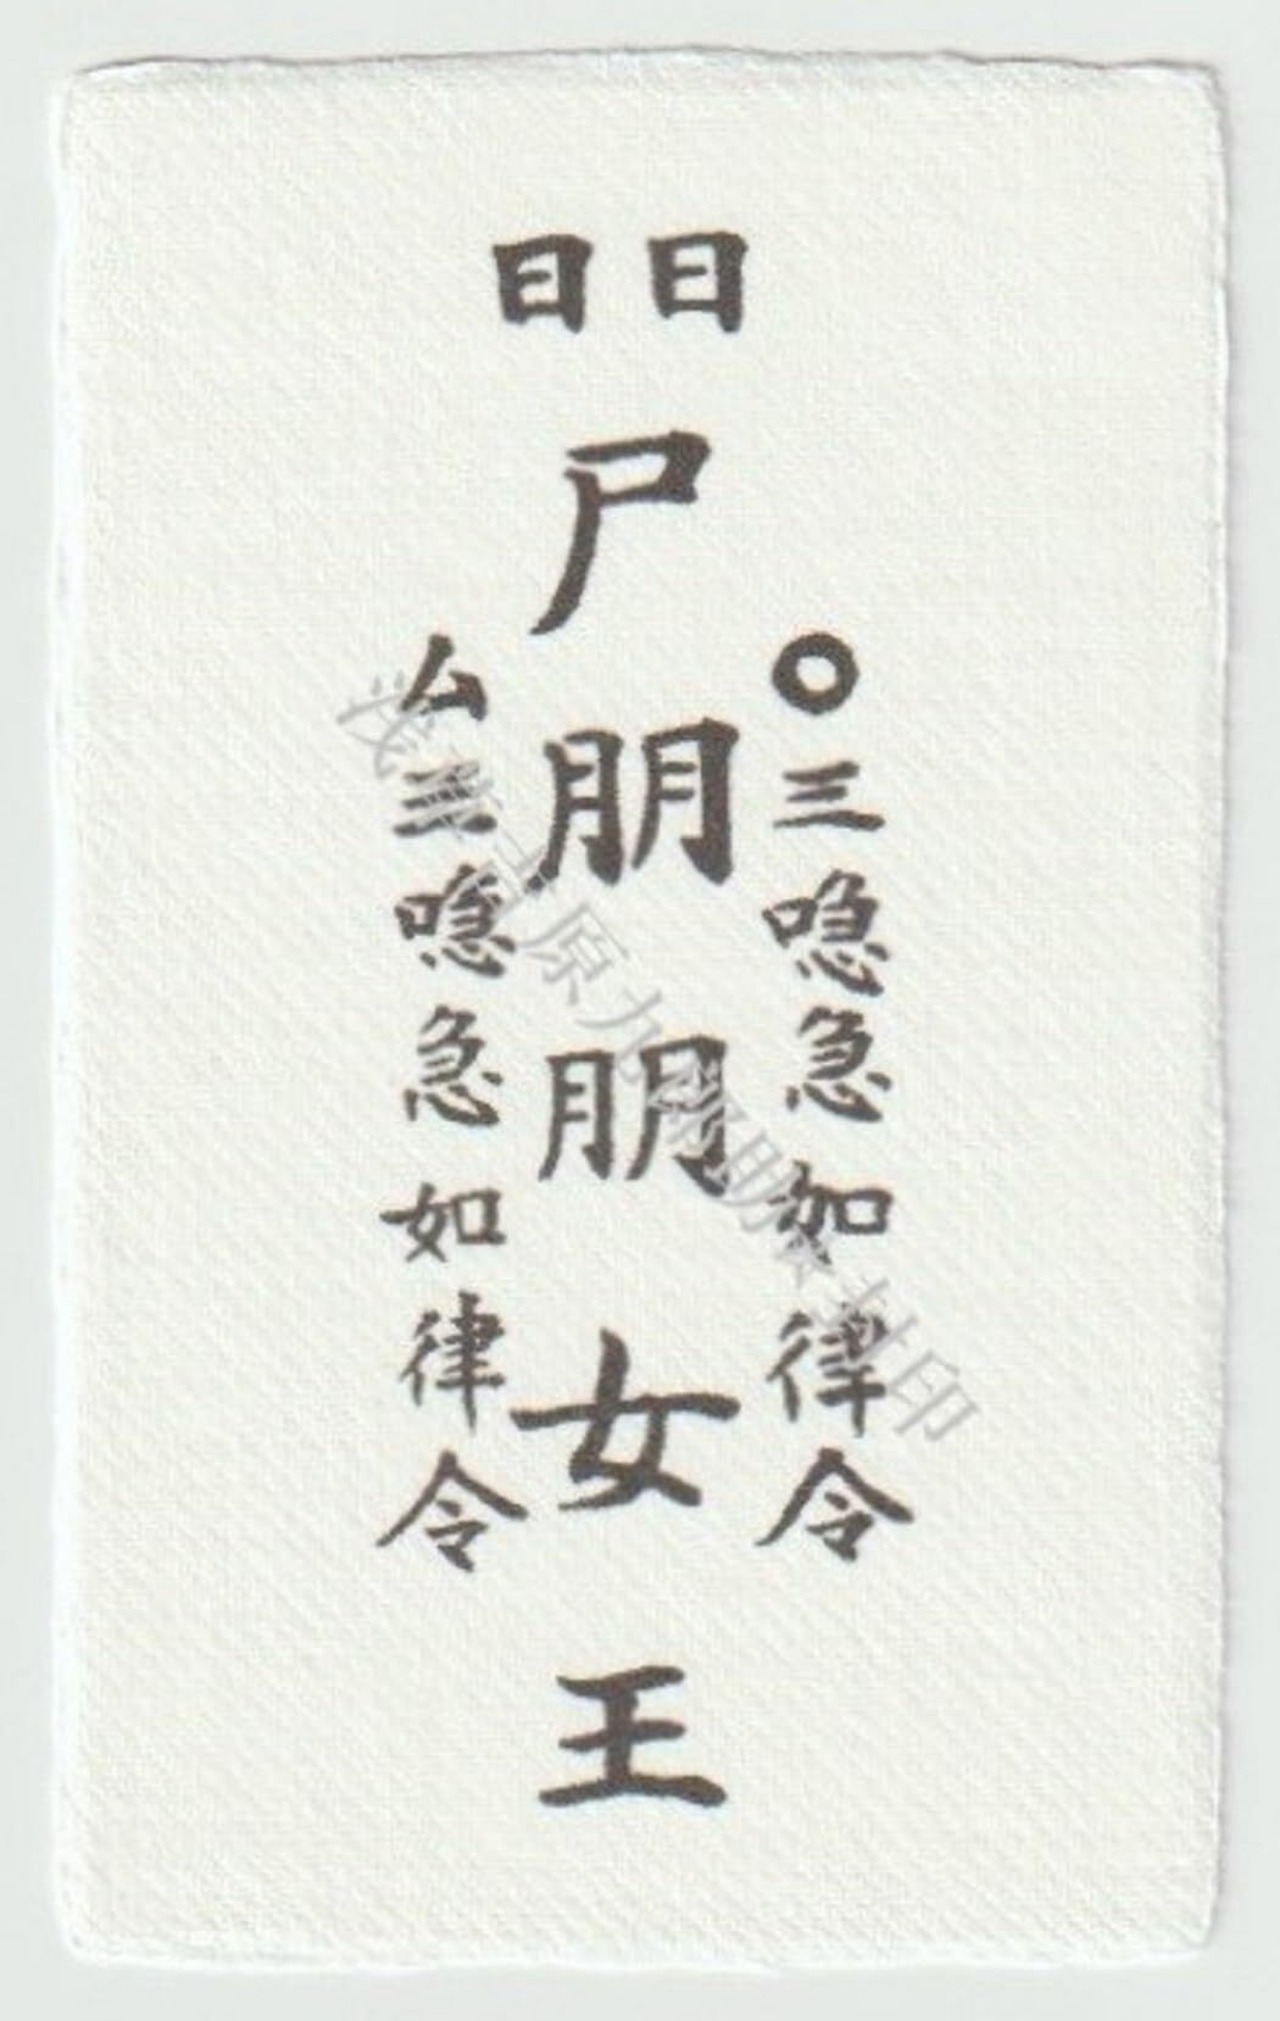 日日
尸
朋
朋
女
王
〇三喼急如律令
厶三喼急如律令